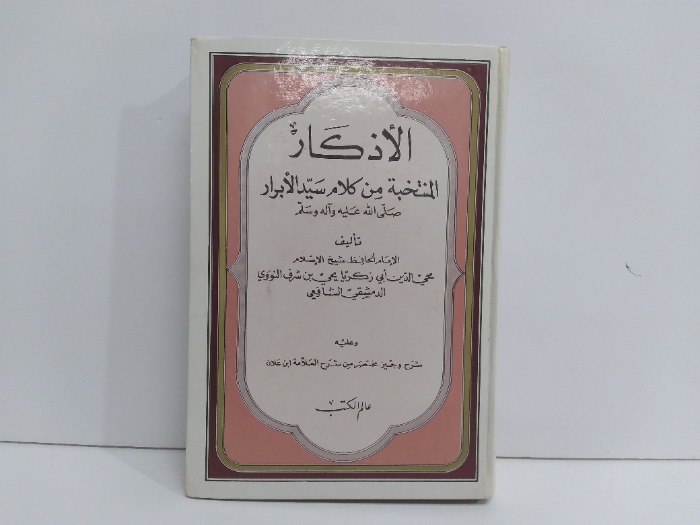 الأذكار
المنتخبة من كلام سيّد الأبرار
صلّى الله عليه وآله وسلّم
تأليف
الإمام الحافظ شيخ الإسلام
محيي الدين أبي زكريا يحيى بن شرف النووي
الدمشقي الشافعي
وعليه
شرح وجيز مختصر من شرح العلامة ابن علان
عالم الكتب